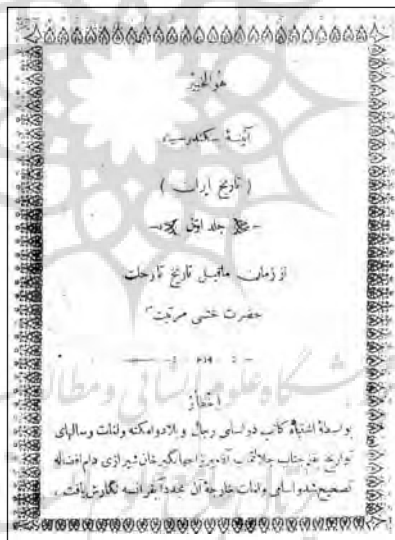 هو الخبیر
آئینهٔ سکندری
( تاریخ ایران )
جلد اول
از زمان ماقبل تاریخ تا رحلت
حضرت ختمی مرتبت
اخطار
بواسطهٔ اشتباه کاتب در اسامی رجال و بلاد و امکنه و لغات و سالهای
تواریخ جناب جلالتمآب آقا میرزا جهانگیر خان شیرازی دام افضاله
تصحیح شد و اسامی و لغات خارجهٔ آن مجدداً بفرانسه نگارش یافت